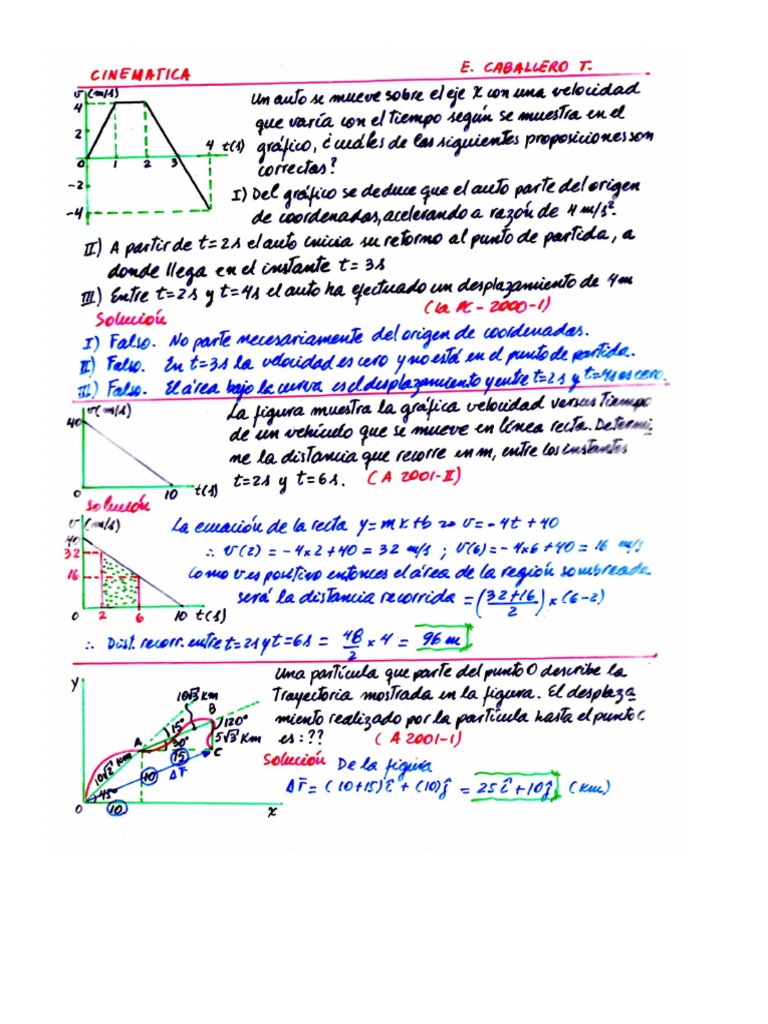 CINEMATICA
E. CABALLERO T.
v(m/s)
4
2
0
-2
-4
1
2
3
4
t(s)
Un auto se mueve sobre el eje X con una velocidad
que varía con el tiempo según se muestra en el
gráfico, ¿cuáles de las siguientes proposiciones son
correctas?
I) Del gráfico se deduce que el auto parte del origen
de coordenadas, acelerando a razón de 4 m/s².
II) A partir de t=2s el auto inicia su retorno al punto de partida, a
donde llega en el instante t=3s
III) Entre t=2s y t=4s el auto ha efectuado un desplazamiento de 4m
(1a PC-2000-1)
Solución
I) Falso. No parte necesariamente del origen de coordenadas.
II) Falso. En t=3s la velocidad es cero y no está en el punto de partida.
III) Falso. El área bajo la curva es el desplazamiento y entre t=2s y t=4s es cero.
v(m/s)
40
0
10
t(s)
La figura muestra la gráfica velocidad versus tiempo
de un vehículo que se mueve en línea recta. Determi
ne la distancia que recorre en m, entre los instantes
t=2s y t=6s. (A 2001-II)
Solución
v(m/s)
40
32
16
0
2
6
10
t(s)
La ecuación de la recta y=mx+b => v=-4t+40
∴ v(2)=-4×2+40=32 m/s ; v(6)=-4×6+40=16 m/s
Como v es positivo entonces el área de la región sombreada
será la distancia recorrida = (32+16/2)×(6-2)
∴ Dist. recorr. entre t=2s y t=6s = 48/2 × 4 = 96 m
Una partícula que parte del punto O describe la
trayectoria mostrada en la figura. El despla
miento realizado por la partícula hasta el punto C
es:?? (A 2001-1)
Y
10√3 km
B
15°
120°
A
30°
5√3 Km
15
C
10√2 km
10
Δr̄
45°
0
10
x
Solución De la figura
Δr̄=(10+15)î+(10)ĵ = 25î+10ĵ (km)